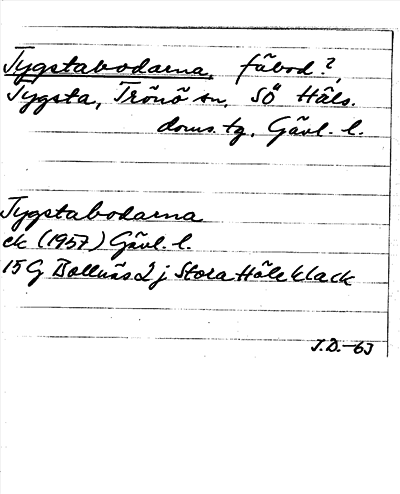 Tygstabodarna, fäbod?,
Tygsta, Trönö sn, SÖ Häls.
doms. tg, Gävl. l.
Tygstabodarna
ek (1957) Gävl. l.
15G Bollnäs 2 j Stora Höleklack
J.D.-63